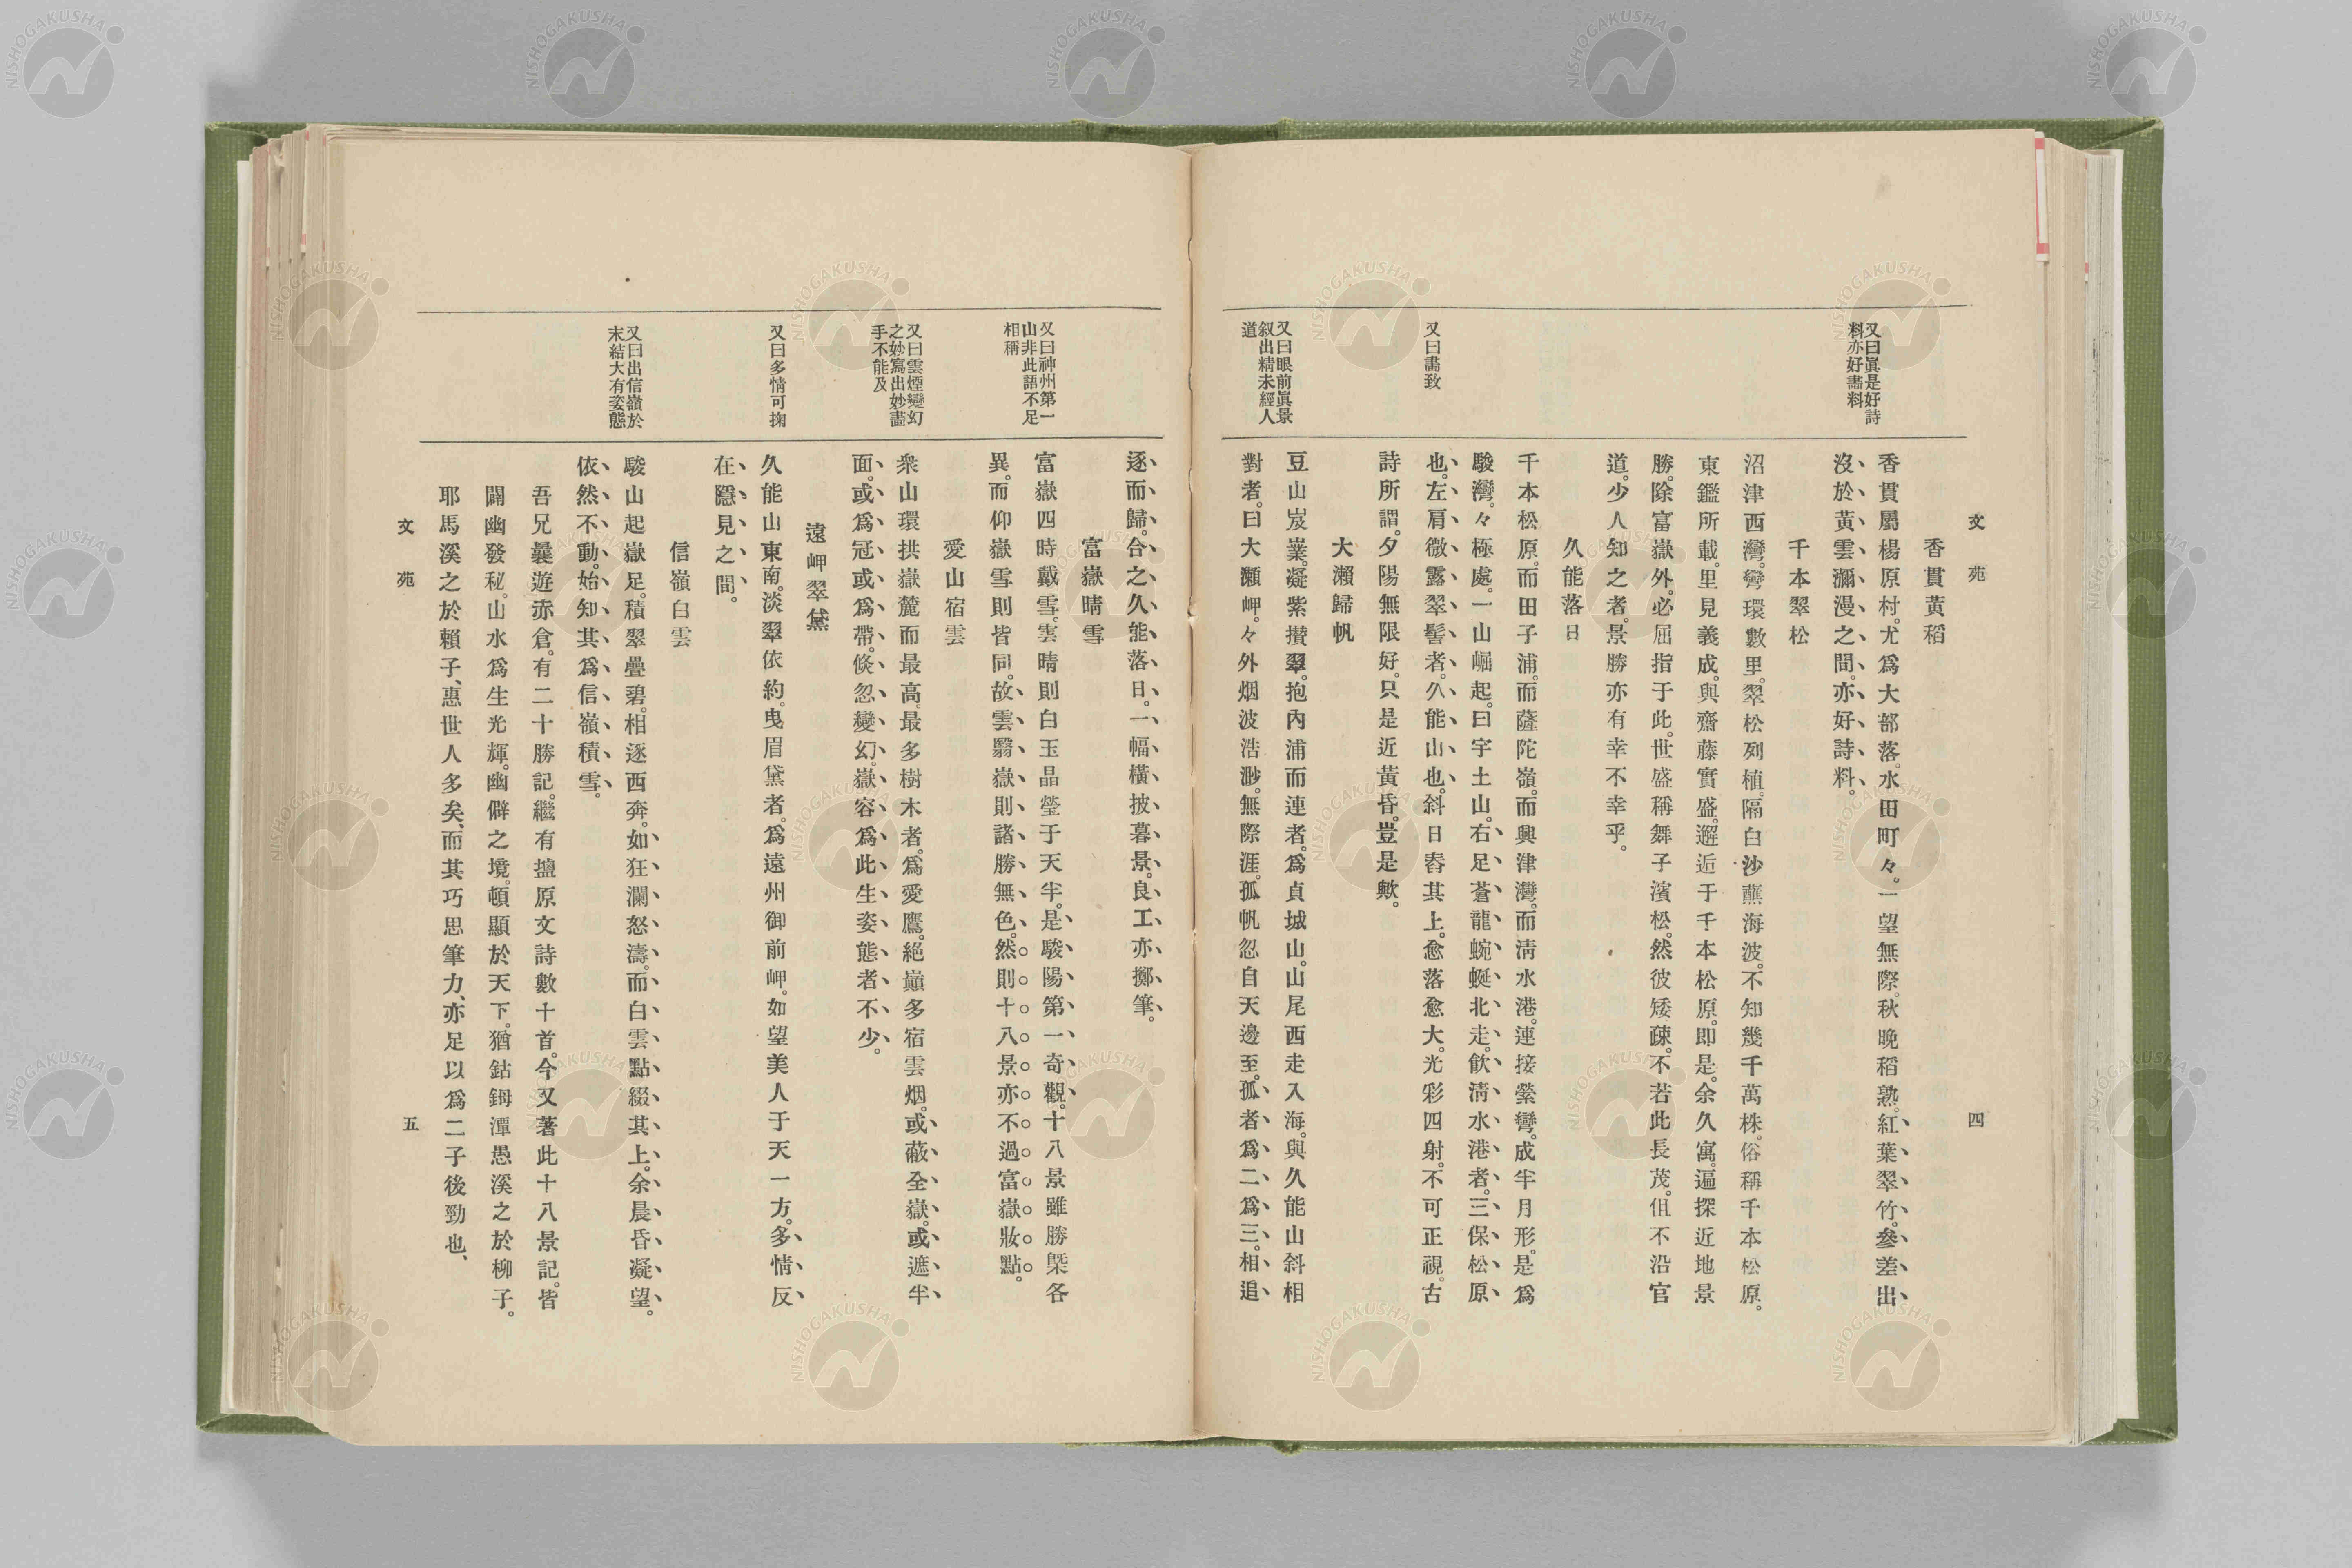 文苑
四
又曰眞是好詩
料亦好畫料
又曰畫致
又曰眼前眞景
叙出精未經人
道
香貫黃稻
香貫屬楊原村。尤爲大部落。水田町々。一望無際。秋晩稻熟。紅葉翠竹。參差出
沒於黃雲瀰漫之間。亦好詩料。
千本翠松
沼津西灣。彎環數里。翠松列植。隔白沙蘸海波。不知幾千萬株。俗稱千本松原。
東鑑所載。里見義成。與齋藤實盛。邂近于千本松原。即是。余久寓。遍探近地景
勝。除富嶽外。必屈指于此。世盛稱舞子濱松。然彼矮疎。不若此長茂。但不沿官
道。少人知之者。景勝亦有幸不幸乎。
久能落日
千本松原。而田子浦。而薩陀嶺。而興津灣。而淸水港。連接縈彎。成半月形。是爲
駿灣。々極處。一山崛起。曰宇土山。右足蒼龍蜿蜒北走。飮淸水港者。三保松原
也。左肩微露翠髻者。久能山也。斜日舂其上。愈落愈大。光彩四射。不可正視。古
詩所謂。夕陽無限好。只是近黃昏。豈是歟。
大瀨歸帆
豆山岌嶪。凝紫攅翠。抱內浦而連者。爲貞城山。山尾西走入海。與久能山斜相
對者。曰大瀨岬。々外烟波浩渺。無際涯。孤帆忽自天邊至。孤者爲二、爲三。相追
又曰神州第一
山非此語不足
相稱
又曰雲煙變幻
之妙寫出妙畫
手不能及
又曰多情可掬
又曰出信嶺於
末結大有姿態
逐而歸。合之久能落日。一幅橫披暮景。良工亦擲筆。
富嶽晴雪
富嶽四時戴雪。雲晴則白玉晶瑩于天半。是駿陽第一奇觀。十八景雖勝槩各
異。而仰嶽雪則皆同。故雲翳嶽則諸勝無色。然則十八景亦不過富嶽妝點。
愛山宿雲
衆山環拱嶽麓而最高。最多樹木者。爲愛鷹。絕巓多宿雲烟。或蔽全嶽。或遮半
面。或爲冠。或爲帶。倐忽變幻。嶽容爲此生姿態者不少。
遠岬翠黛
久能山東南。淡翠依約。曳眉黛者。爲遠州御前岬。如望美人于天一方。多情反
在隱見之間。
信嶺白雲
駿山起嶽足。積翠疊碧。相逐西奔。如狂瀾怒濤。而白雲點綴其上。余晨昏凝望。
依然不動。始知其爲信嶺積雪。
吾兄曩遊赤倉。有二十勝記。繼有搵原文詩數十首。今又著此十八景記。皆
闢幽發秘。山水爲生光輝。幽僻之境。頓顯於天下。猶鈷鉧潭愚溪之於柳子。
耶馬溪之於賴子、惠世人多矣、而其巧思筆力、亦足以爲二子後勁也、
文苑
五